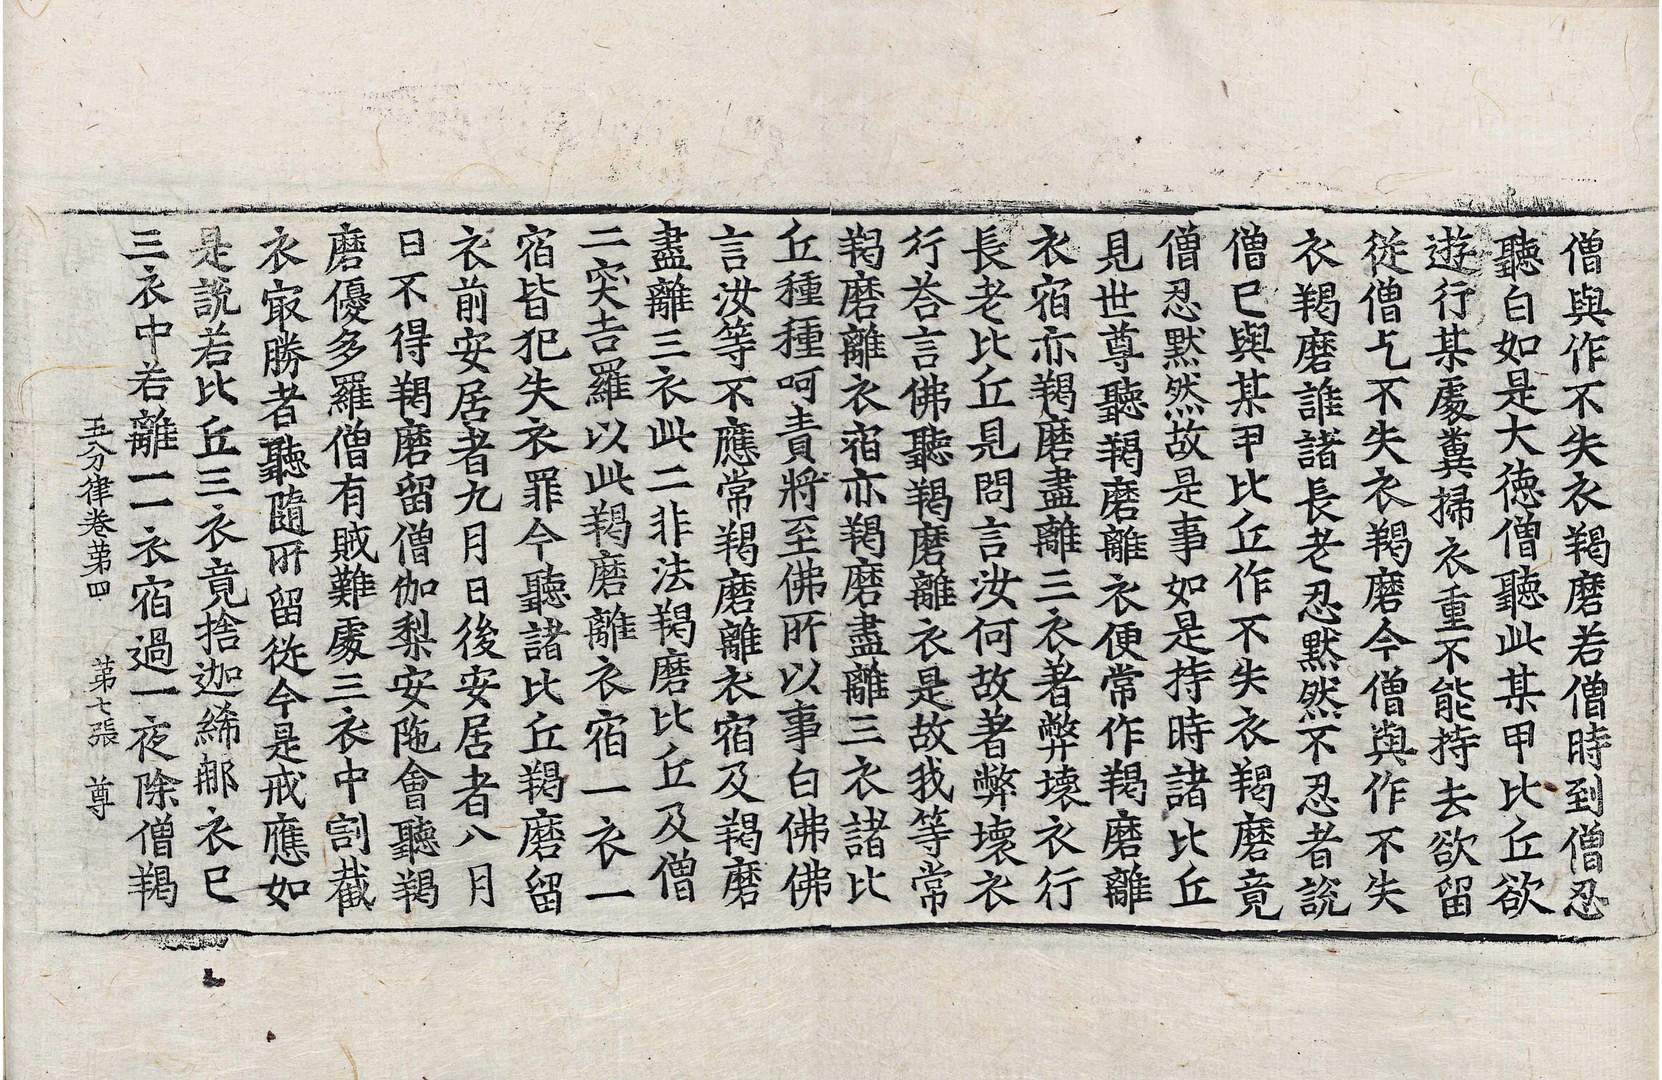 僧與作不失衣羯磨若僧時到僧忍
聽白如是大徳僧聽此某甲比丘欲
遊行某處糞掃衣重不能持去欲留
從僧乞不失衣羯磨今僧與作不失
衣羯磨誰諸長老忍默然不忍者說
僧已與某甲比丘作不失衣羯磨竟
僧忍默然故是事如是持時諸比丘
見世尊聽羯磨離衣便常作羯磨離
衣宿亦羯磨盡離三衣著弊壞衣行
長老比丘見問言汝何故著弊壞衣
行荅言佛聽羯磨離衣是故我等常
羯磨離衣宿亦羯磨盡離三衣諸比
丘種種呵責將至佛所以事白佛佛
言汝等不應常羯磨離衣宿及羯磨
盡離三衣此二非法羯磨比丘及僧
二突吉羅以此羯磨離衣宿一衣一
宿皆犯失衣罪今聽諸比丘羯磨留
衣前安居者九月日後安居者八月
日不得羯磨留僧伽梨安陁會聽羯
磨優多羅僧有賊難處三衣中割截
衣㝡勝者聽隨所留從今是戒應如
是說若比丘三衣竟捨迦絺那衣已
三衣中若離一一衣宿過一夜除僧羯
五分律卷第四 第七張 尊